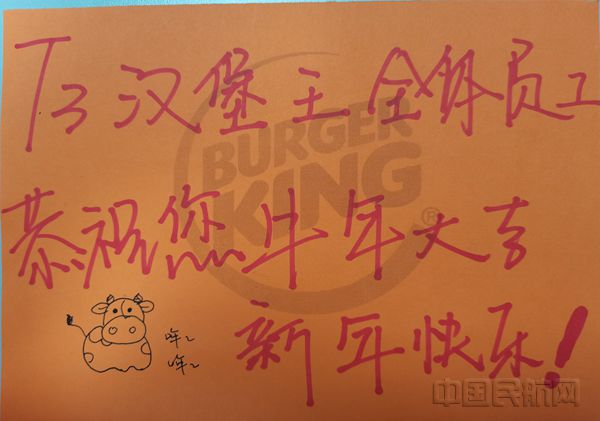 T3汉堡王全体员工
BURGER
KING®
恭祝您牛年大吉
哞~
哞~
新年快乐!
中国民航网